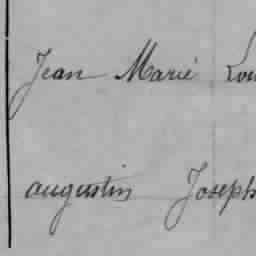 Jean Marié Lou
augustin Joseph